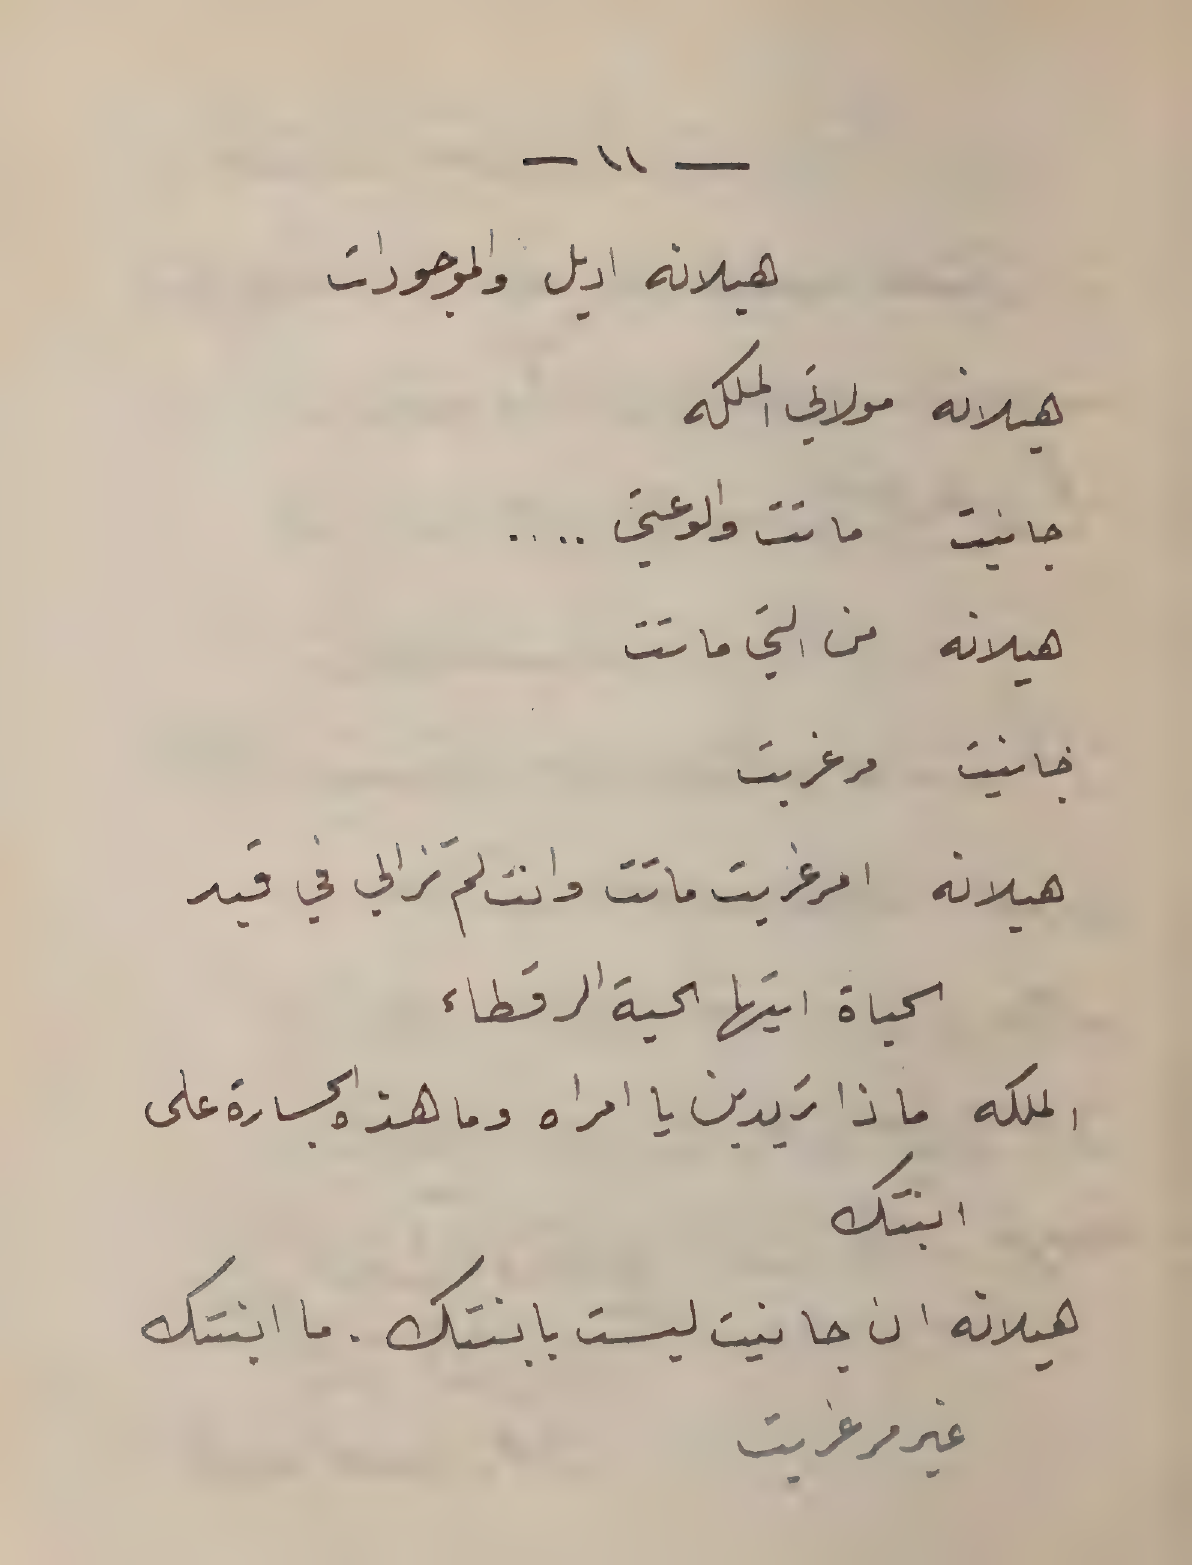 — ١١ —
هيلانه اديل والموجودات
هيلانه مولاتي الملكه
جانيت ماتت والوعتي ....
هيلانه من التي ماتت
جانيت مرغريت
هيلانه امرغريت ماتت وانت لم تزالي في قيد
الحياة ايتها الحية الرقطاء
الملكه ماذا تريدين يا امراه وما هذه الجسارة على
ابنتك
هيلانه ان جانيت ليست بابنتك . ما ابنتك
غير مرغريت